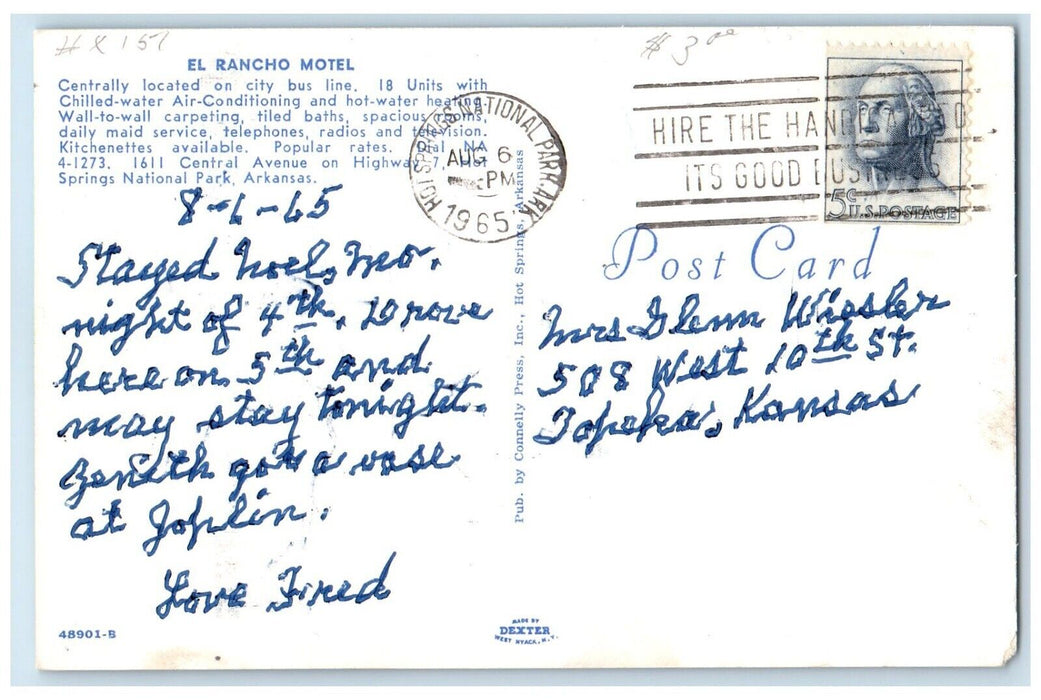 # X 157
$ 3 00
EL RANCHO MOTEL
Centrally located on city bus line. 18 Units with
Chilled-water Air-Conditioning and hot-water heating.
Wall-to-wall carpeting, tiled baths, spacious rooms,
daily maid service, telephones, radios and television.
Kitchenettes available. Popular rates. Dial NA
4-1273. 1611 Central Avenue on Highway 7, Hot
Springs National Park, Arkansas.
HOT SPRINGS NATIONAL PARK, ARK.
AUG 6
PM
1965
HIRE THE HANDICAPPED
ITS GOOD BUSINESS
5c U.S. POSTAGE
Post Card
8-6-65
Stayed Noel, Mo.
night of 4th. Drove
here on 5th and
may stay tonight.
Zenith got a vase
at Joplin.
Love Fred
Mrs Glenn Wiesler
508 West 10th St.
Topeka, Kansas
Pub. by Connelly Press, Inc., Hot Springs, Arkansas
48901-B
MADE BY
DEXTER
WEST NYACK, N.Y.